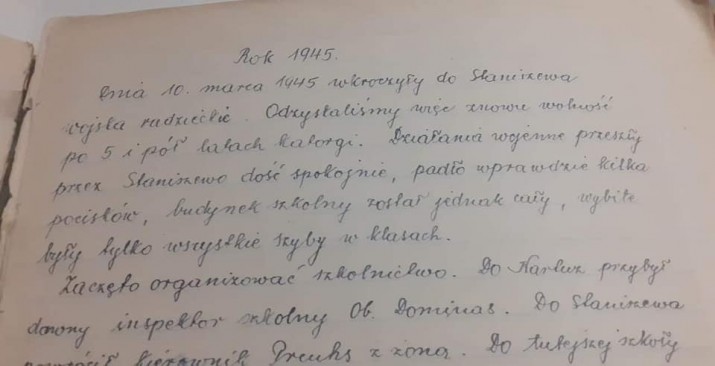 Rok 1945.
Dnia 10. marca 1945 wkroczyły do Staniszewa
wojska radzieckie. Odzyskaliśmy więc znowu wolność
po 5 i pół latach katorgi. Działania wojenne przeszły
przez Staniszewo dość spokojnie, padło wprawdzie kilka
pocisków, budynek szkolny został jednak cały, wybite
były tylko wszystkie szyby w klasach.
Zaczęto organizować szkolnictwo. Do Kartuz przybył
dawny inspektor szkolny Ob. Dominas. Do Staniszewa
powrócił kierownik Preuhs z żoną. Do tutejszej szkoły